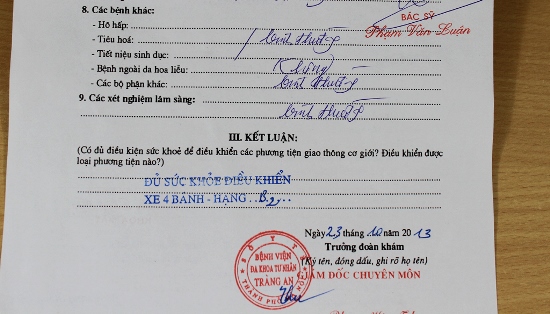 8. Các bệnh khác:
BÁC SỸ
Phạm Văn Luân
- Hô hấp:
- Tiêu hoá: bình thường
- Tiết niệu sinh dục:
- Bệnh ngoài da hoa liễu:
- Các bộ phận khác: bình thường
9. Các xét nghiệm lâm sàng: bình thường
III. KẾT LUẬN:
(Có đủ điều kiện sức khoẻ để điều khiển các phương tiện giao thông cơ giới? Điều khiển được
loại phương tiện nào?)
ĐỦ SỨC KHỎE ĐIỀU KHIỂN
XE 4 BÁNH - HẠNG ..B2..
Ngày 23 tháng 10 năm 2013
Trưởng đoàn khám
(Ký tên, đóng dấu, ghi rõ họ tên)
GIÁM ĐỐC CHUYÊN MÔN
SỞ Y TẾ
BỆNH VIỆN
ĐA KHOA TƯ NHÂN
TRÀNG AN